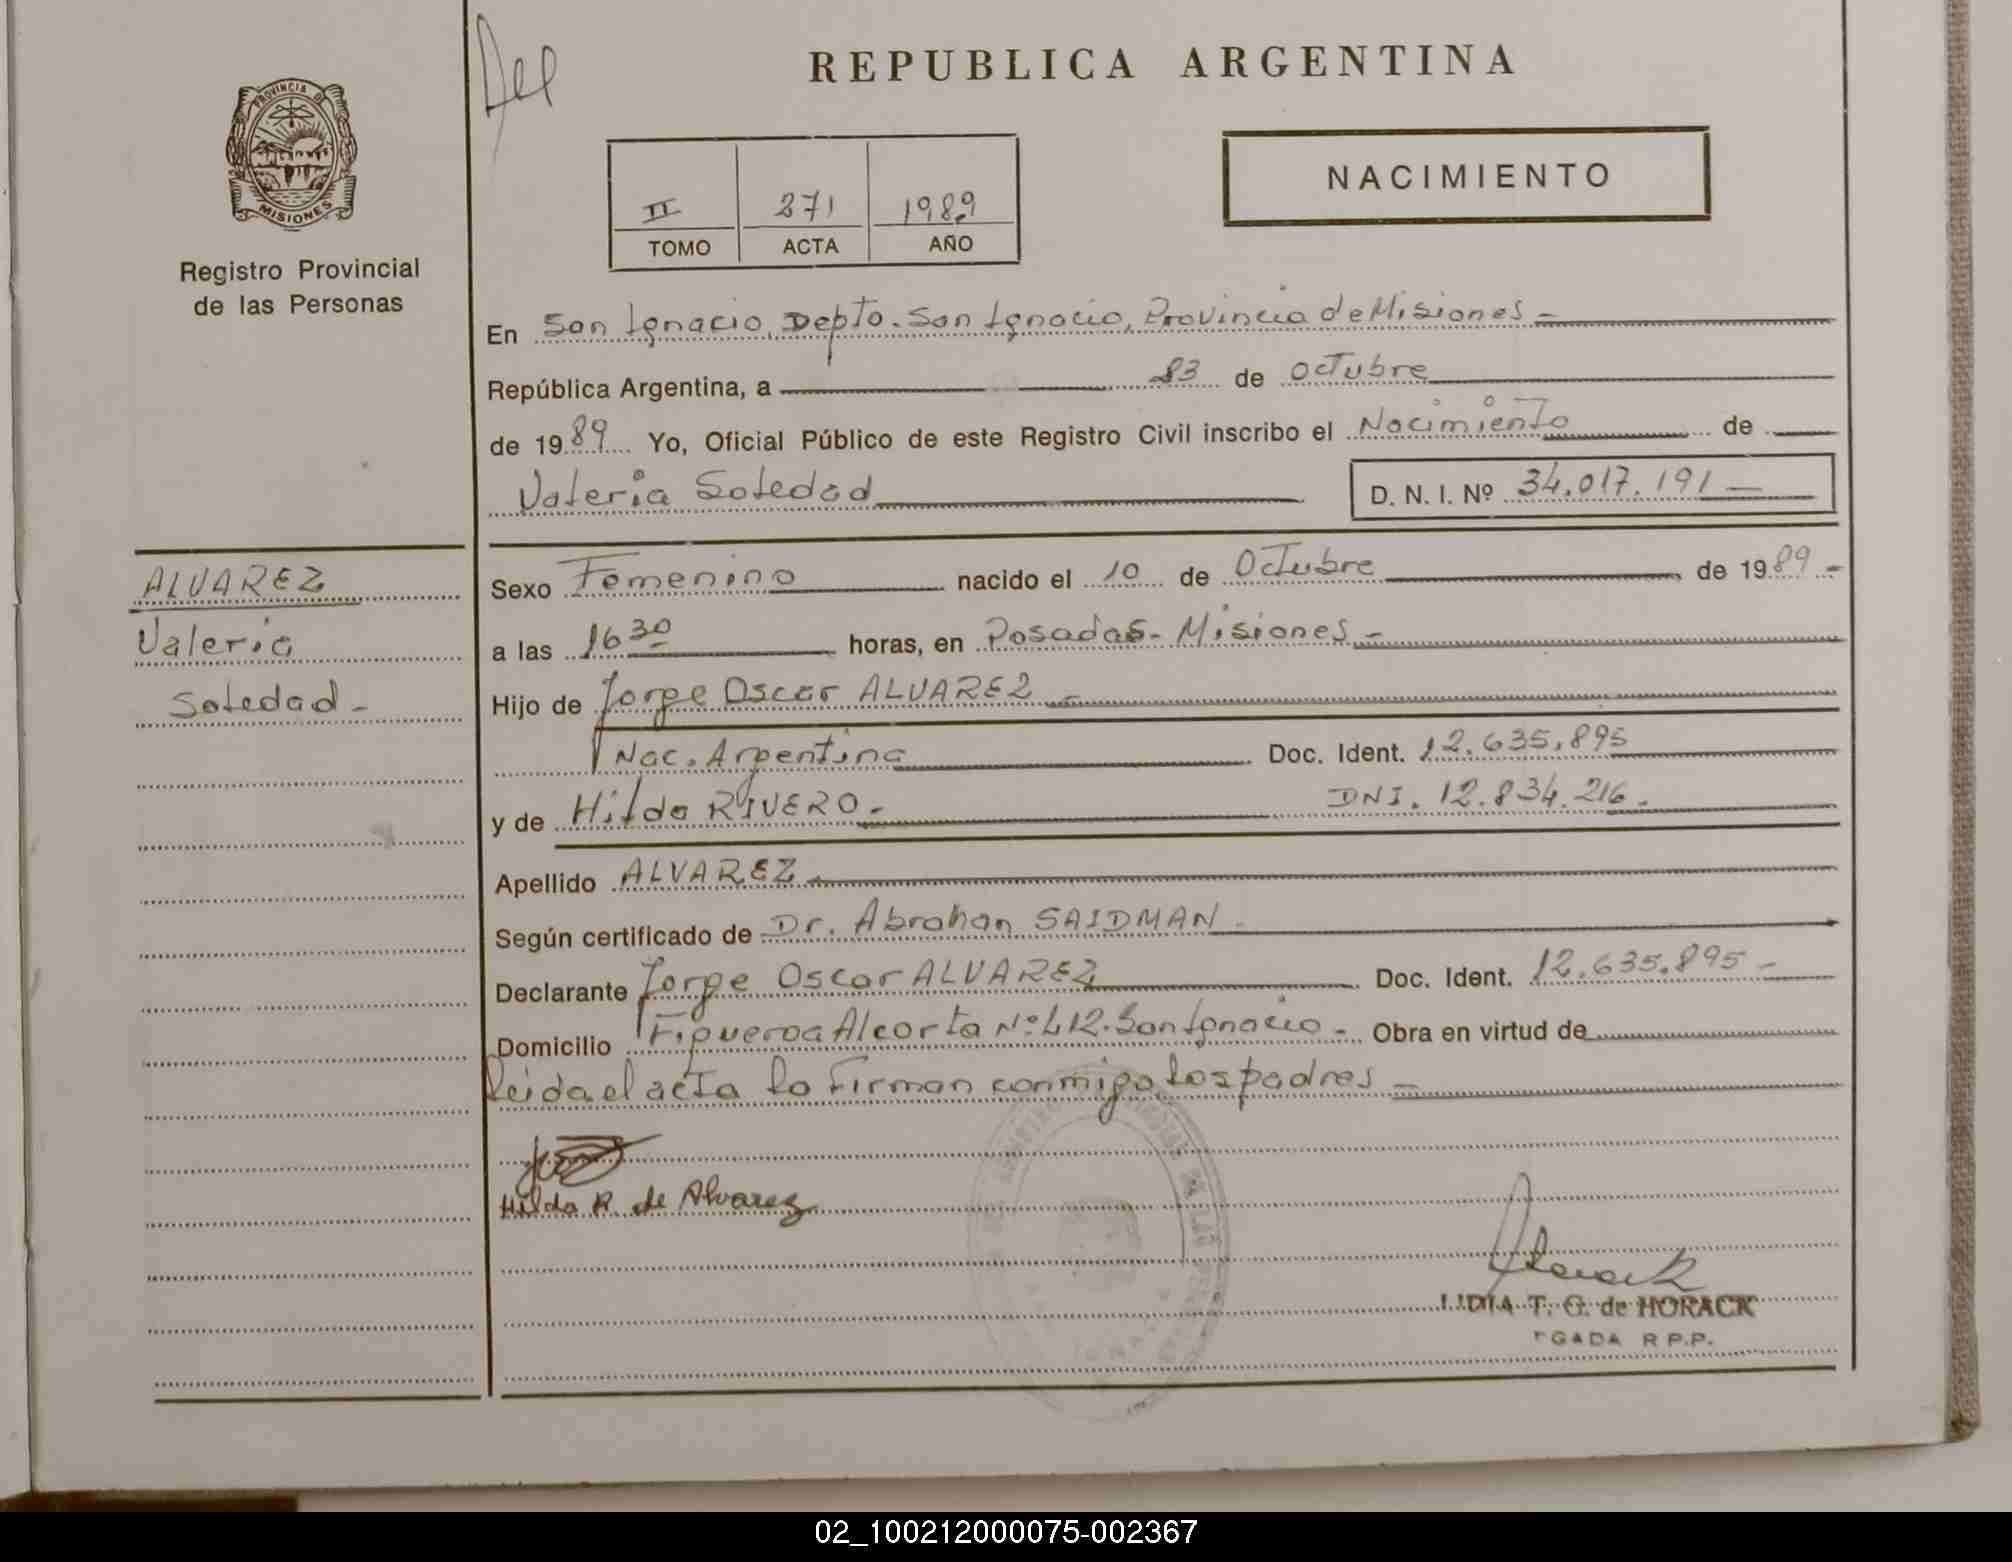 REPUBLICA ARGENTINA
PROVINCIA DE
MISIONES
Registro Provincial
de las Personas
NACIMIENTO
II 271 1989
TOMO ACTA AÑO
En San Ignacio, Depto. San Ignacio, Provincia de Misiones -
República Argentina, a 23 de Octubre
de 1989 Yo, Oficial Público de este Registro Civil inscribo el Nacimiento de
Valeria Soledad D. N. I. Nº 34.017.191 -
ALVAREZ
Valeria
Soledad -
Sexo Femenino nacido el 10 de Octubre de 1989 -
a las 16 30 horas, en Posadas - Misiones -
Hijo de Jorge Oscar ALVAREZ -
Nac. Argentina Doc. Ident. 12.635.895
y de Hilda RIVERO - DNI. 12.834.216 -
Apellido ALVAREZ
Según certificado de Dr. Abrahan SAIDMAN -
Declarante Jorge Oscar ALVAREZ Doc. Ident. 12.635.895 -
Domicilio Figueroa Alcorta Nº 412. San Ignacio - Obra en virtud de
leida el acta la Firman conmigo los padres -
Hilda R. de Alvarez
LIDIA T. G. de HORACK
GADA R P.P.
02_100212000075-002367